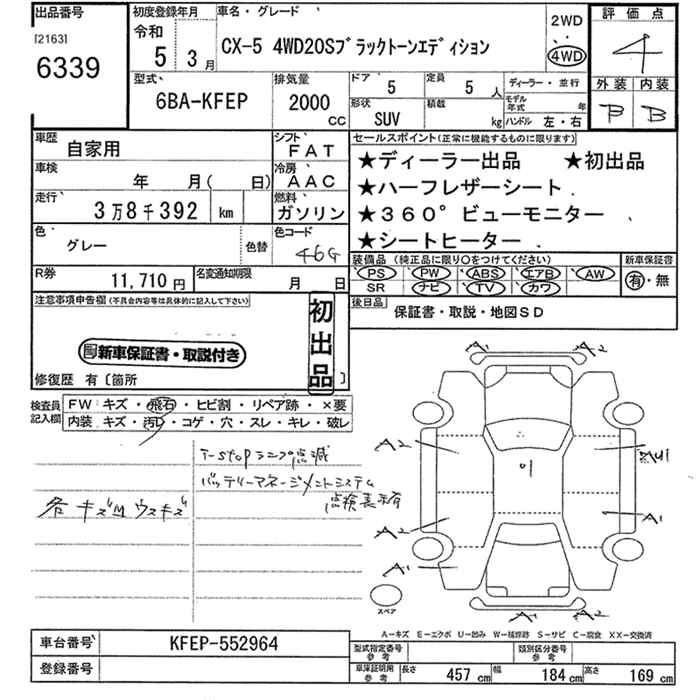 出品番号
[2163]
6339
初度登録年月
令和
5 3月
車名・グレード
CX-5 4WD20Sブラックトーンエディション
2WD
・・
4WD
評価点
4
外装 内装
B B
型式
6BA-KFEP
排気量
2000
cc
ドア 5
定員 5 人
ディーラー・並行
形状
SUV
積載
kg
モデル年式 年
ハンドル 左・右
車歴 自家用
シフト FAT
車検 年 月( 日)
冷房 AAC
走行 3万8千392 km
燃料 ガソリン
色 グレー
色替
色コード 46G
R券 11,710円
名変通知期限 月 日
セールスポイント(正常に機能するものに限ります)
★ディーラー出品 ★初出品
★ハーフレザーシート
★360°ビューモニター
★シートヒーター
装備品 (純正品に限り○をつけてください)
新車保証書
PS PW ABS エアB AW
SR ナビ TV カワ
有・無
後日品
保証書・取説・地図SD
注意事項申告欄(不具合内容等は具体的に記入して下さい)
新車保証書・取説付き
初出品
修復歴 有〔箇所 〕
検査員記入欄
FW キズ・飛石・ヒビ割・リペア跡・×要
内装 キズ・汚レ・コゲ・穴・スレ・キレ・破レ
i-stopランプ点滅
バッテリーマネージメントシステム
点検表示有
各キズM ウスキズ
A1 A2
A2
A2
A1
A1
A1
A2
スペア
A-キズ E-エクボ U-凹み W-補修跡 S-サビ C-腐食 XX-交換済
車台番号 KFEP-552964
登録番号
型式指定番号 参考
類別区分番号 参考
車庫証明用 参考
長さ 457 cm 幅 184 cm 高さ 169 cm